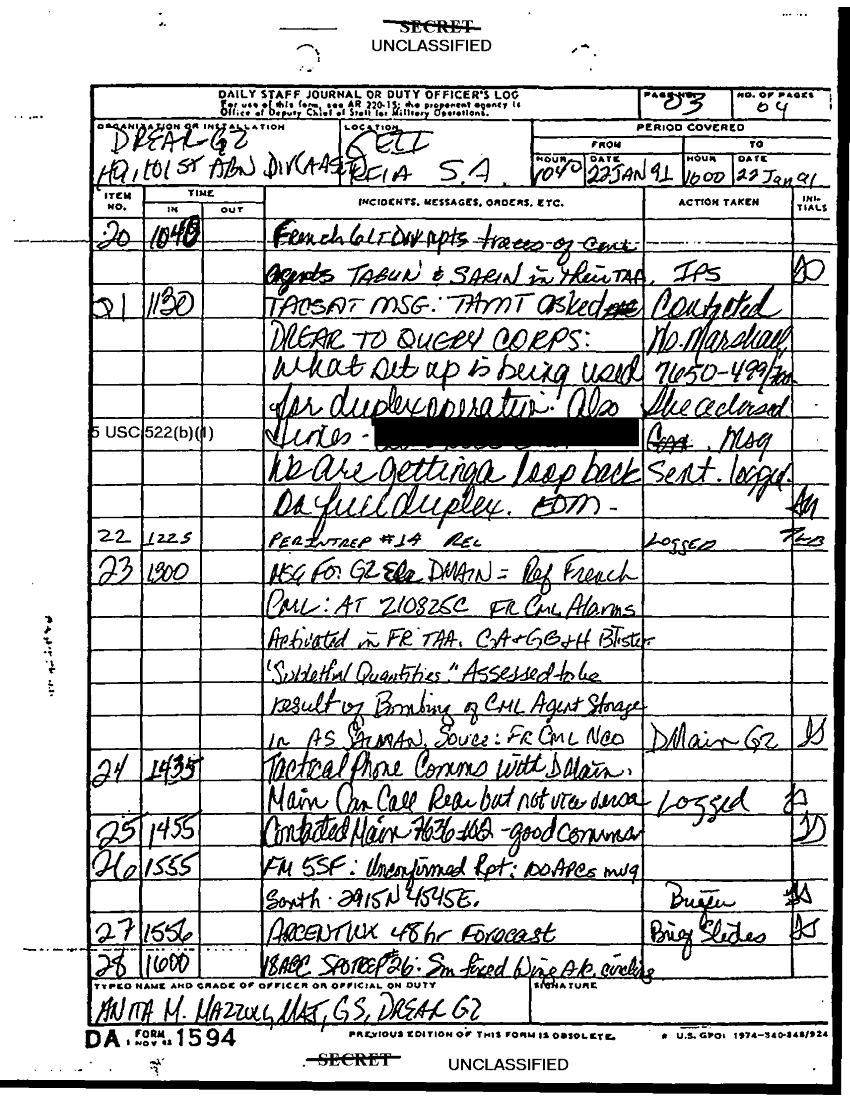 SECRET
UNCLASSIFIED
DAILY STAFF JOURNAL OR DUTY OFFICER'S LOG
For use of this form, see AR 220-15; the proponent agency is
Office of Deputy Chief of Staff for Military Operations.
PAGE NO.
03
NO. OF PAGES
04
ORGANIZATION OR INSTALLATION
DREAR G2
HQ, 101ST ABN DIV (AASLT)
LOCATION
KFIA S.A.
PERIOD COVERED
FROM
TO
HOUR
1040
DATE
22 JAN 91
HOUR
1600
DATE
22 Jan 91
ITEM NO.
TIME
IN
OUT
INCIDENTS, MESSAGES, ORDERS, ETC.
ACTION TAKEN
INI-TIALS
20 1040 French 6 LT DIV rpts traces of cml
agents TABUN & SARIN in their TAA. IPS
21 1130 TACSAT MSG: TAMT asked Contacted
DREAR TO QUERY CORPS: Marshall,
What set up is being used 7650-499
for duplex operation. Also She advised
5 USC 522(b)(1) . Msg
We are getting a loop back Sent. logged.
on full duplex. EOM-
22 1225 PERINTREP #14 REL LOGGED
23 1300 MSG FOR G2 DMAIN = Ref French
CML: AT 210825C FR CML Alarms
Activated in FR TAA. GA+GB+H Blister
"Sublethal Quantities." Assessed to be
result of Bombing of CML Agent Storage
in AS SALMAN. Source: FR CML NCO DMain G2 JS
24 1435 Tactical Phone Comms with DMain.
Main Can Call Rear but not vice versa Logged
25 1455 Contacted Main 7636 -good commo
26 1555 FM 5SF: Unconfirmed Rpt: 100 APCs mvg
South. 2915N 4545E. JS
27 1556 ARCENT WX 48 hr Forecast Brief Slides JS
28 1600 18ABC SPOTREP #26: Sm fixed Wing A/C circling
TYPED NAME AND GRADE OF OFFICER OR OFFICIAL ON DUTY
ANITA M. MAZZOLI, MAJ, GS, DREAR G2
SIGNATURE
DA FORM 1 NOV 62 1594
PREVIOUS EDITION OF THIS FORM IS OBSOLETE.
U.S. GPO: 1974-540-848/924
SECRET
UNCLASSIFIED